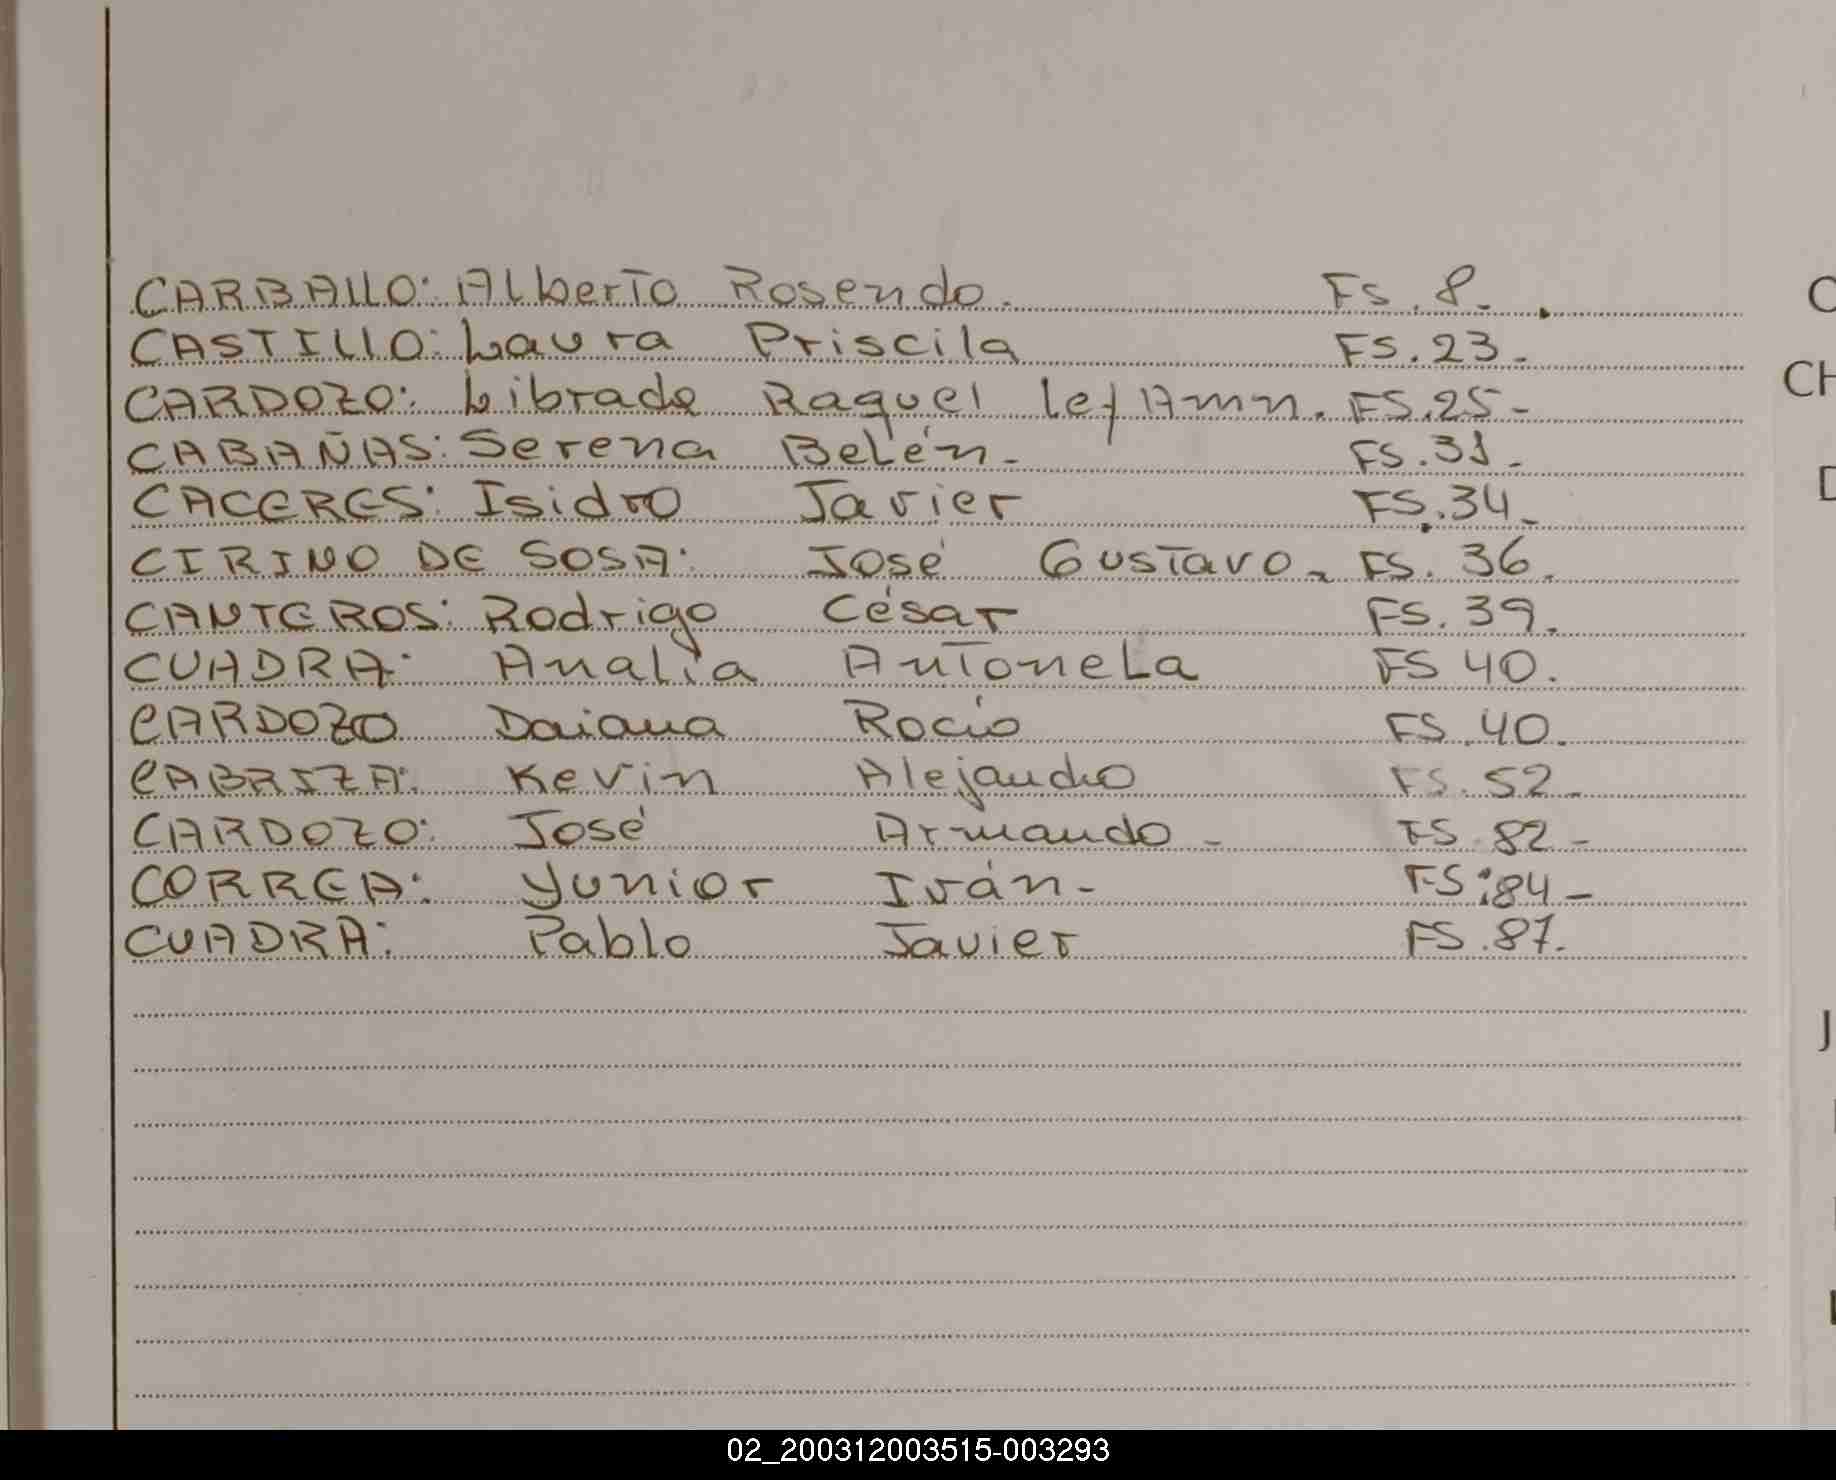 CARBALLO: Alberto Rosendo. FS. 8.
CASTILLO: Laura Priscila FS. 23.
CARDOZO: Librada Raquel FS. 25-
CABAÑAS: Serena Belén- FS. 31.
CACERES: Isidro Javier FS. 34-
CIRINO DE SOSA: José Gustavo. FS. 36.
CANTEROS: Rodrigo César FS. 39.
CUADRA: Analía Antonela FS 40.
CARDOZO Daiana Rocío FS. 40.
CABRIZA: Kevin Alejandro FS. 52-
CARDOZO: José Armando- FS. 82-
CORREA: Yunior Iván- FS: 84-
CUADRA: Pablo Javier FS. 87.
C
CH
D
J
02_200312003515-003293